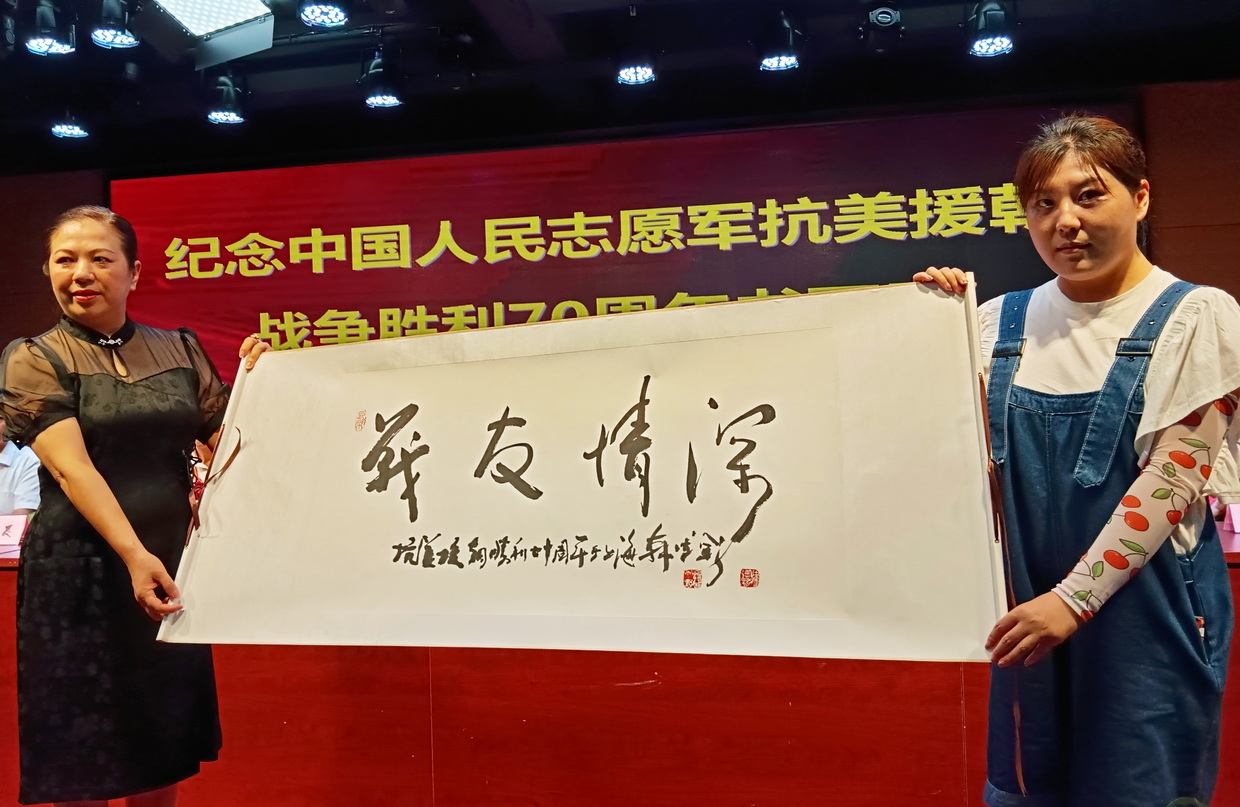 纪念中国人民志愿军抗美援朝
战争胜利70周年书画
戰友情深
抗美援朝勝利七十周年于上海